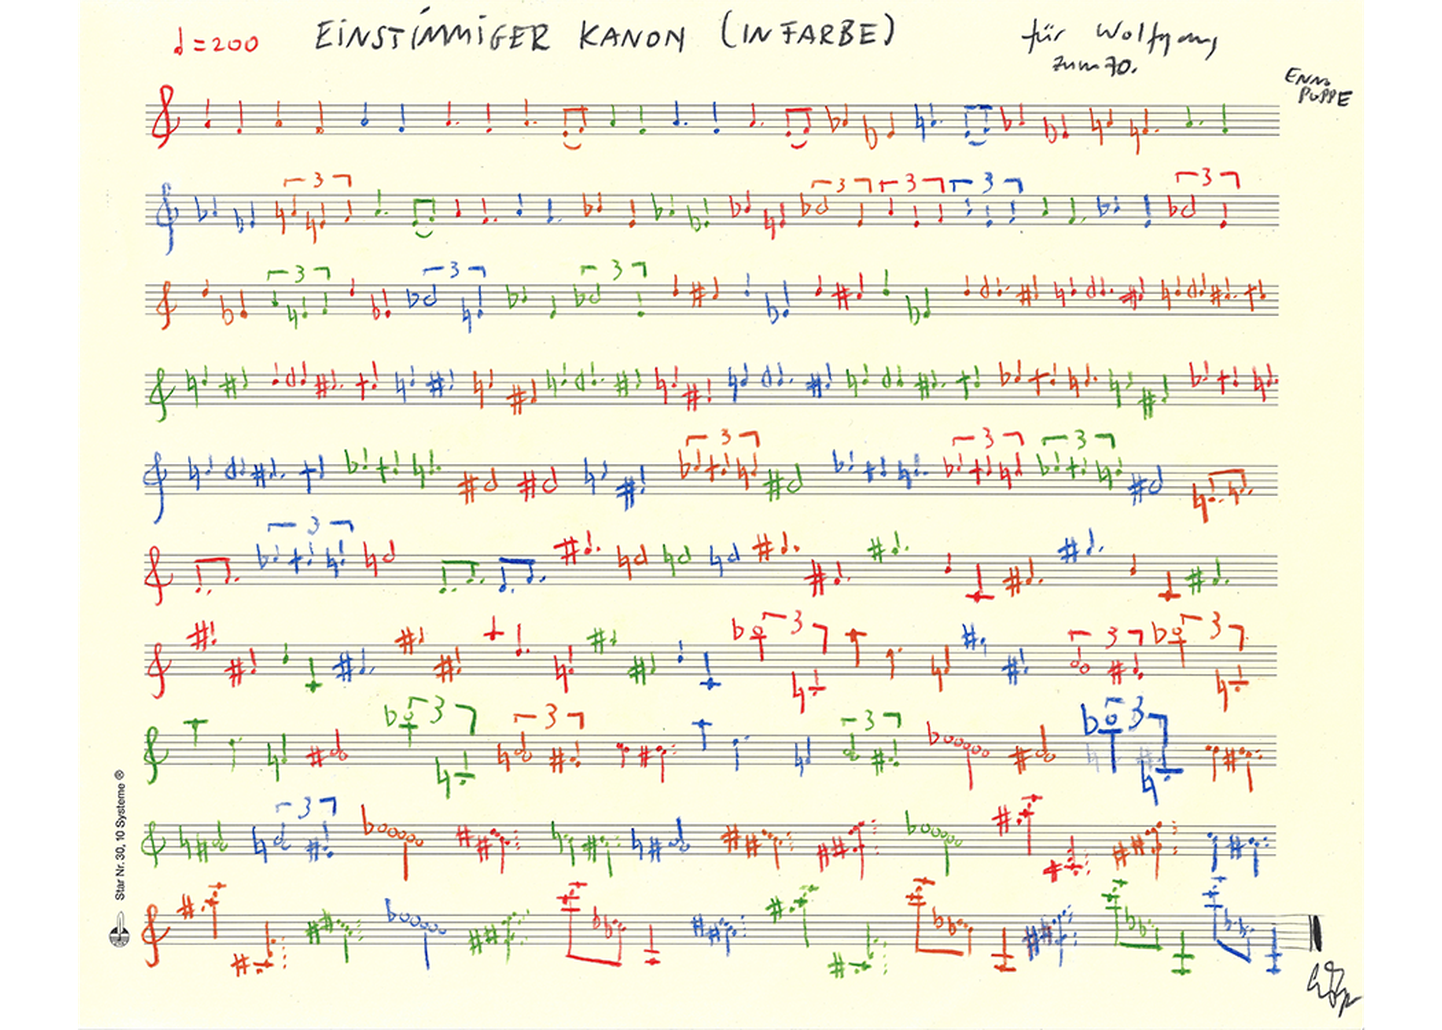 ♩ = 200 EINSTIMMIGER KANON (IN FARBE) für Wolfgang
zum 70.
ENNO
POPPE
3
3 3 3 3
3 3 3
3 3 3
3
3 3 3
3 3 3
3 3
Star Nr. 30, 10 Systeme ®